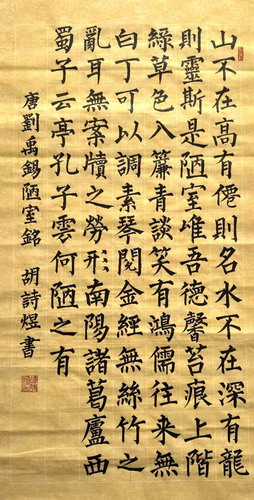 山不在高有僊則名水不在深有龍
則靈斯是陋室唯吾德馨苔痕上階
綠草色入簾青談笑有鴻儒往來無
白丁可以調素琴閱金經無絲竹之
亂耳無案牘之勞形南陽諸葛廬西
蜀子云亭孔子雲何陋之有
唐劉禹錫陋室銘 胡詩煜書